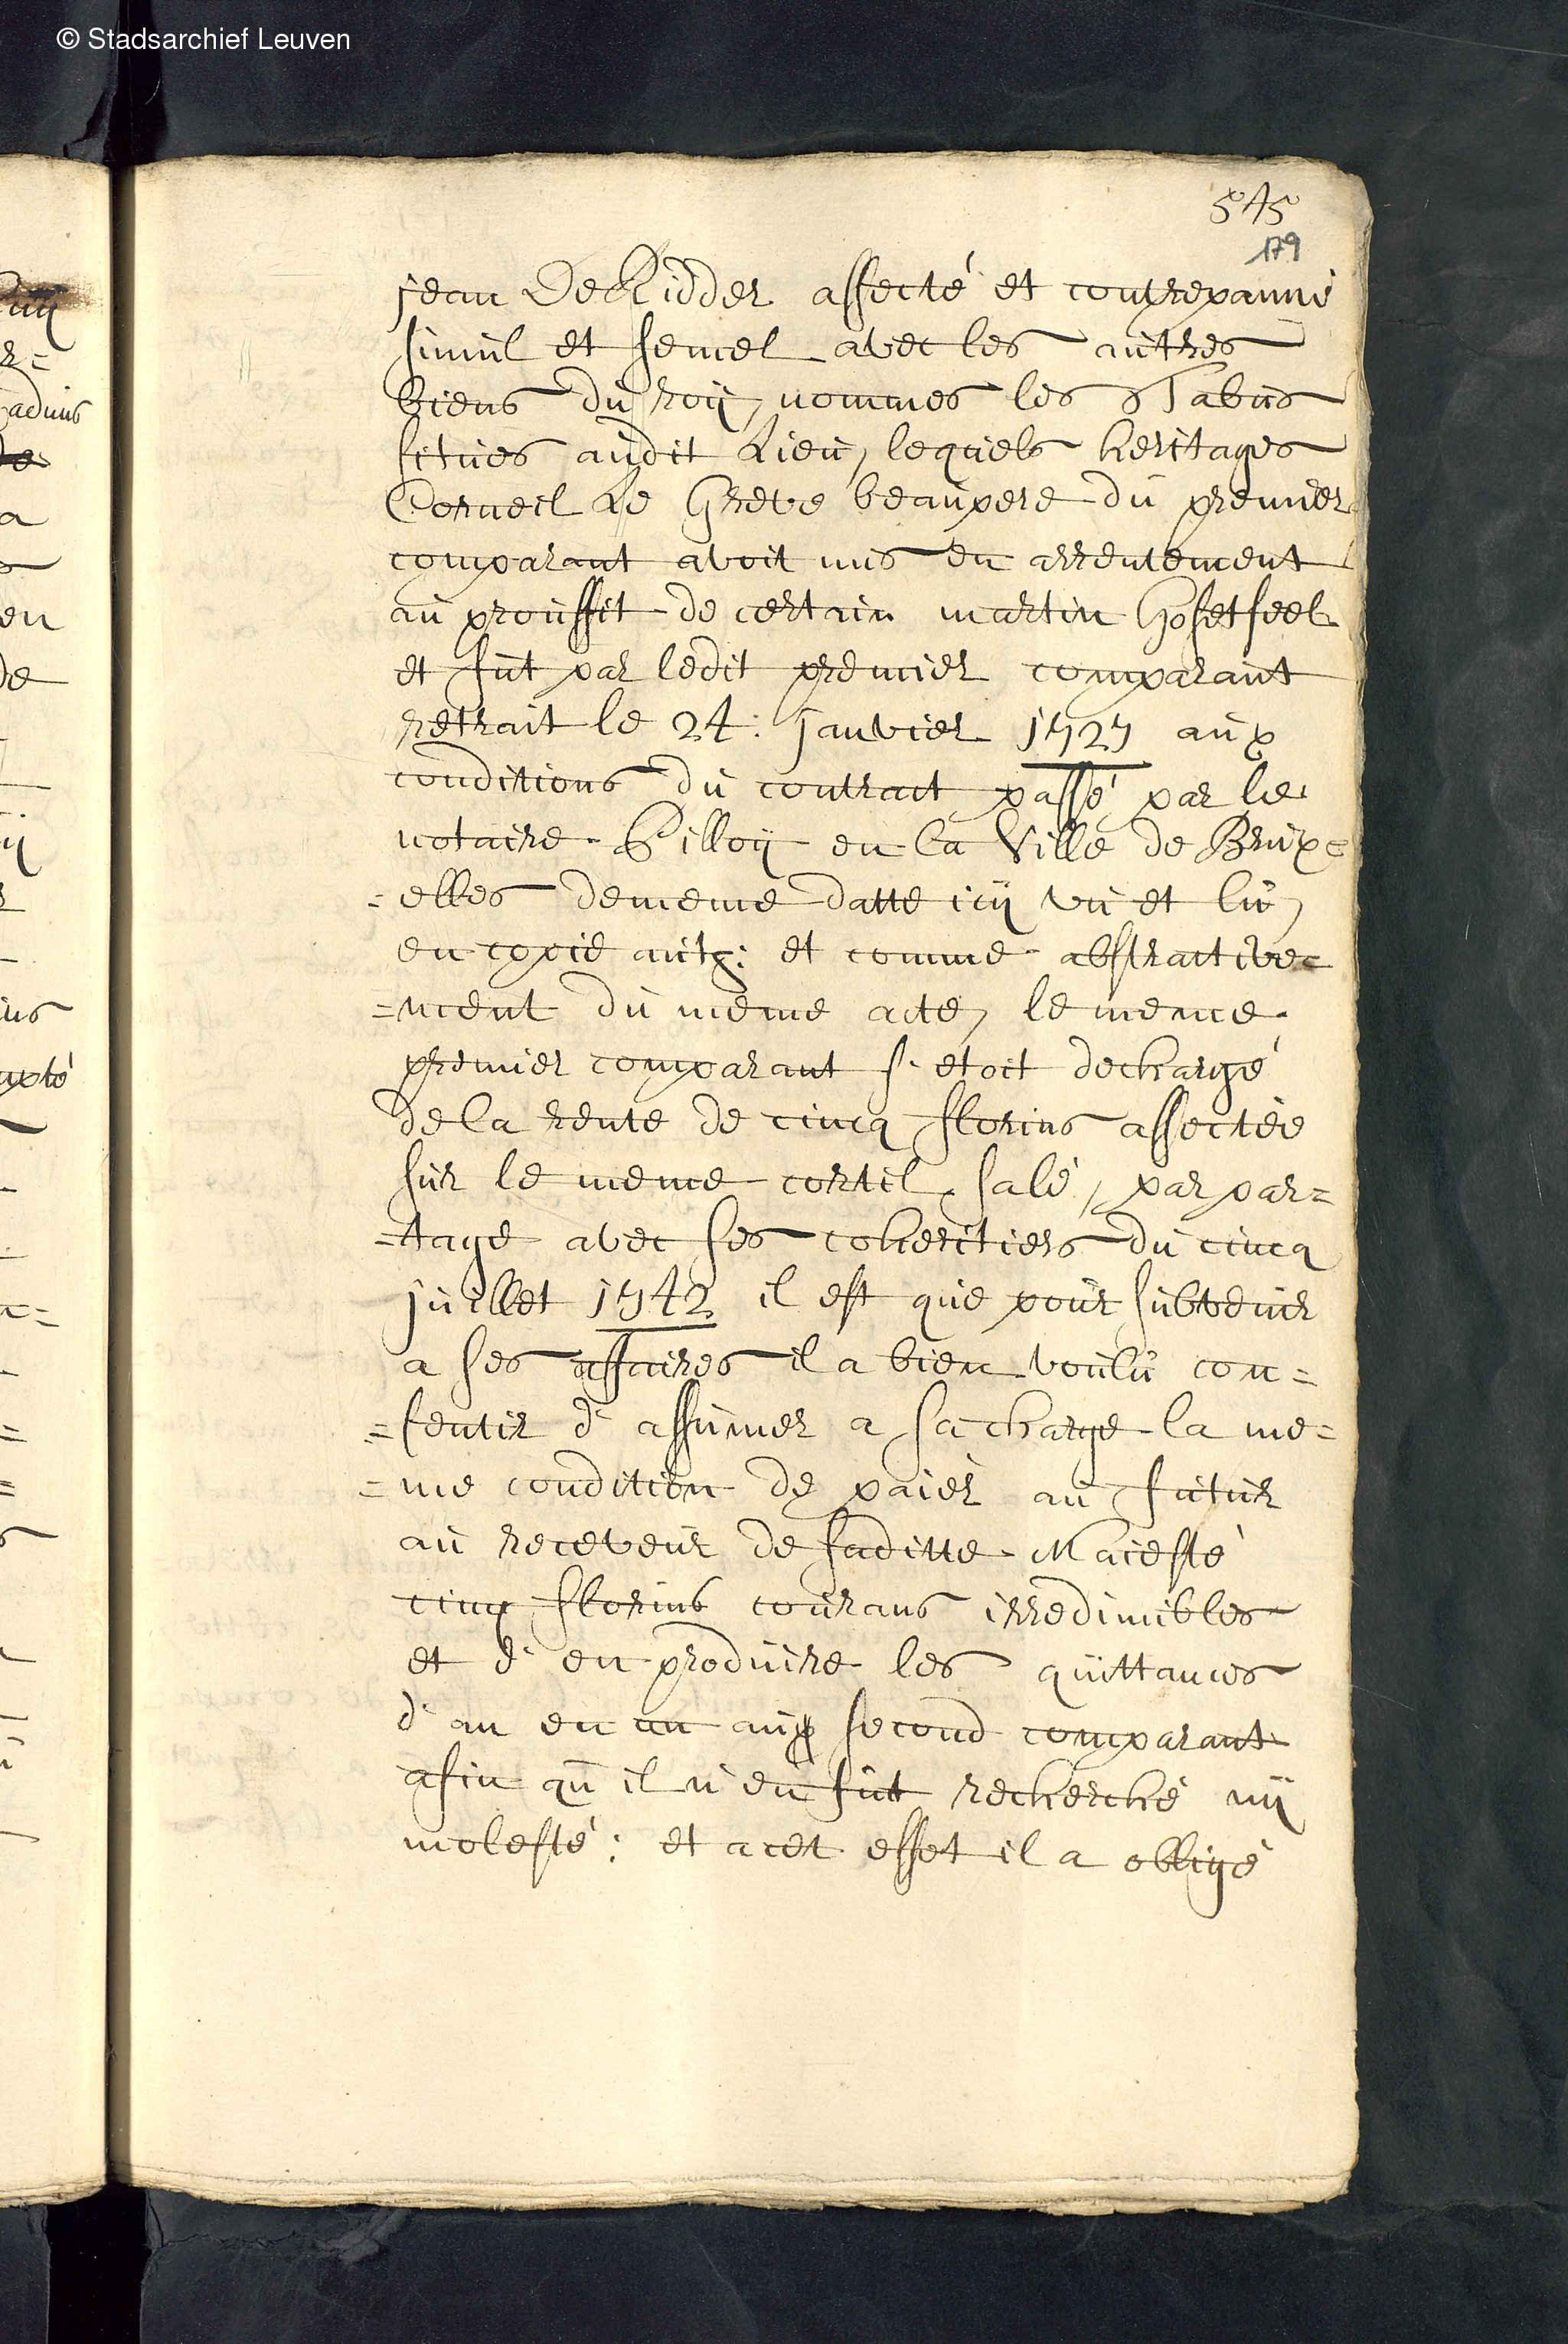 © Stadsarchief Leuven
545
179
jean De Ridder affecté et contrepanné
simul et semel avec les autres
biens du roÿ, nommes les Stabus
situes audit Lieu, lequels heritages
Corneil De Greve beaupere du premier
comparant avoit mis en arrentement
au prouffit de certain martin Gosetfeel
et fut par ledit premier comparant
retrait le 24: janvier 1727 aux
conditions du contract passé par le
notaire Pilloÿ en la Ville de Brux=
=elles dememe datte icÿ vu et lu,
en copie aut: et comme abstractive=
=ment du meme acte, le meme
premier comparant s'etoit dechargé
de la rente de cincq florins affectée
sur le meme cortil salé, par par=
=tage avec ses coheritiers du cincq
juillet 1742 il est que pour subvenir
a ses affaires il a bien voulu con=
=sentir d'assumer a sa charge la me=
=me condition de paier au futur
au receveur de saditte Majesté
cinq florins courans irredimibles
et d'en produire les quittances
d'an en an aux second comparant
afin qu'il n'en fut recherché nÿ
molesté: et acet effet il a obligé